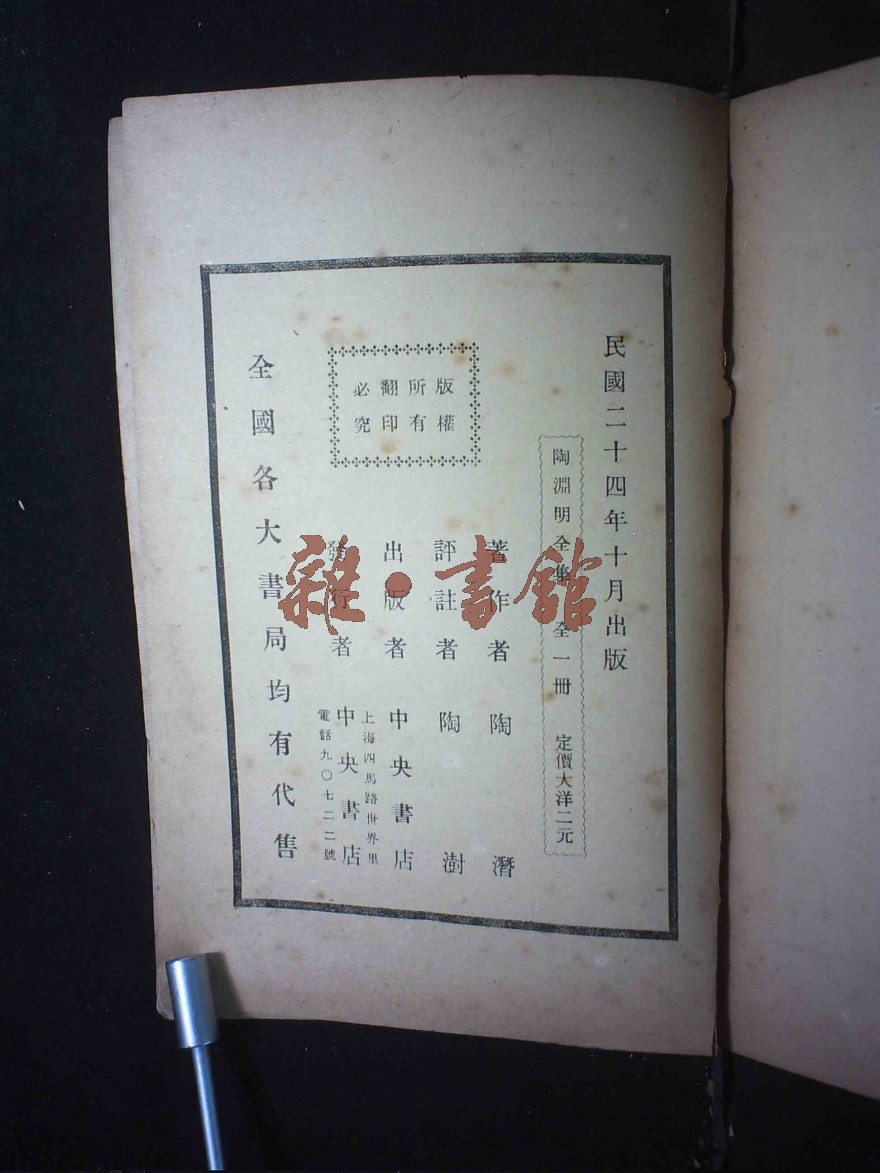 民國二十四年十月出版
陶淵明全集 全一冊 定價大洋二元
版權
所有
翻印
必究
著作者 陶潛
評註者 陶澍
出版者 中央書店
上海四馬路世界里
發行者 中央書店
電話九〇七二二號
全國各大書局均有代售
雜·書館